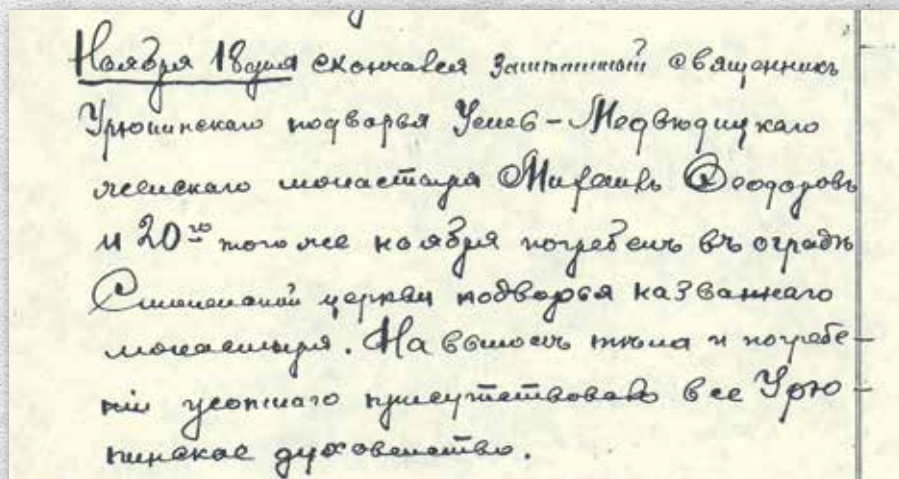 Ноября 18 дня скончался заштатный священникъ
Урюпинскаго подворья Усть-Медвѣдицкаго
женскаго монастыря Михаилъ Ѳеодоровъ
и 20го того же ноября погребенъ въ оградѣ
церкви подворья названнаго
монастыря. На выносѣ тѣла и погребе-
ніи усопшаго присутствовало все Урю-
пинское духовенство.